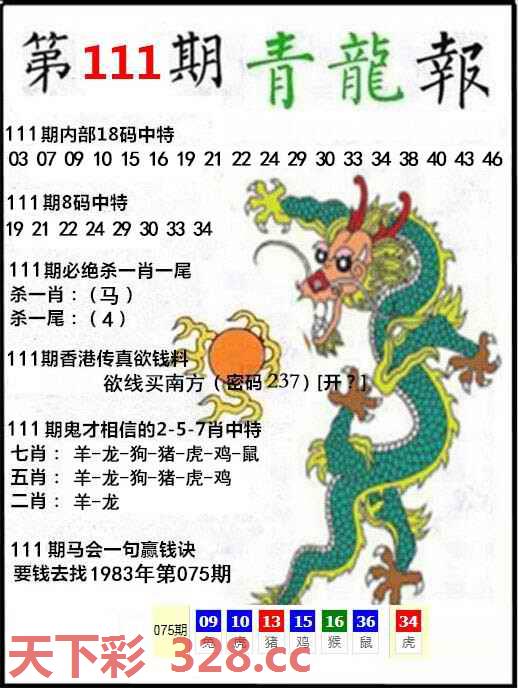 第111期青龍報
111期内部18码中特
03 07 09 10 15 16 19 21 22 24 29 30 33 34 38 40 43 46
111期8码中特
19 21 22 24 29 30 33 34
111期必绝杀一肖一尾
杀一肖：（马）
杀一尾：（4）
111期香港传真欲钱料
欲线买南方（密码237）[开？]
111期鬼才相信的2-5-7肖中特
七肖：羊-龙-狗-猪-虎-鸡-鼠
五肖：羊-龙-狗-猪-虎-鸡
二肖：羊-龙
111期马会一句赢钱诀
要钱去找1983年第075期
075期 09 10 13 15 16 36 34
兔 虎 猪 鸡 猴 鼠 虎
天下彩 328.cc